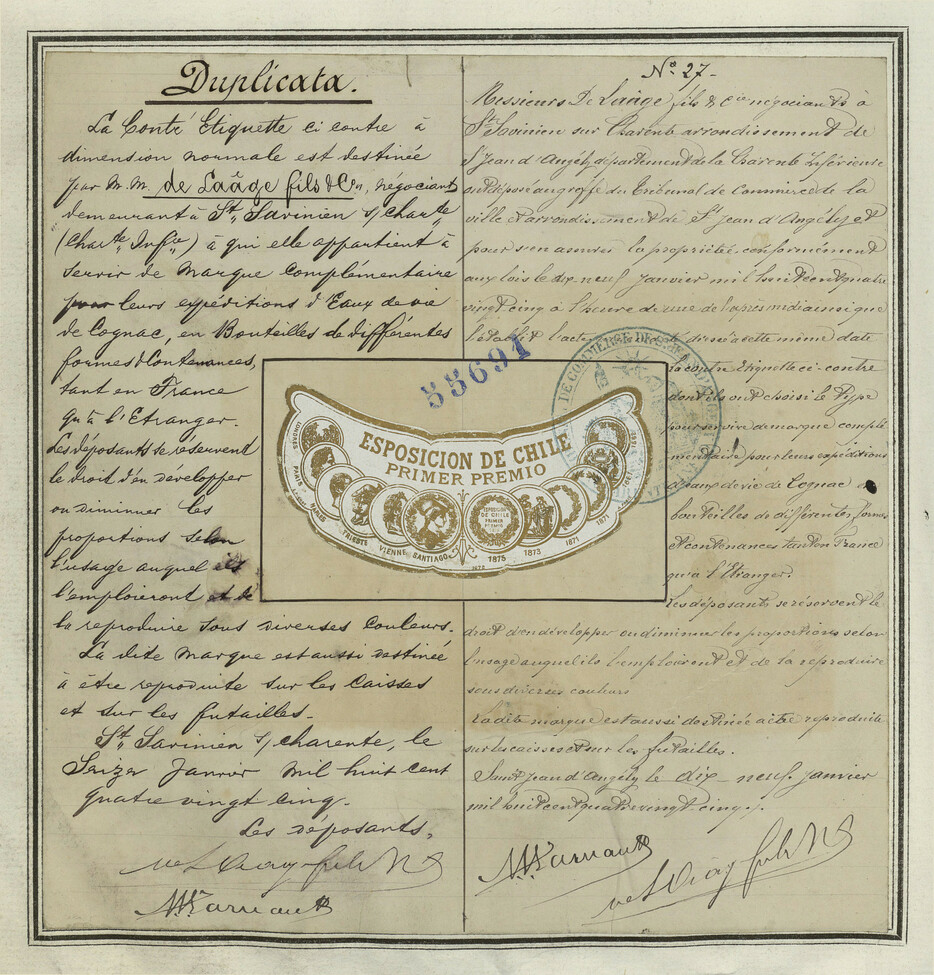 Duplicata.
La Contre Etiquette ci contre à
dimension normale est destinée
par M.M. de Laâge fils & Cie, négociants
demeurant à St Savinien s/ Charte
(Charte Infre) à qui elle appartient à
servir de Marque Complémentaire
pour leurs expéditions d'Eaux de vie
de Cognac, en Bouteilles de différentes
formes & Contenances,
tant en France
qu'à l'Etranger.
Les déposants se réservent
le droit d'en développer
ou diminuer les
proportions selon
l'usage auquel ils
l'emploieront et de
la reproduire sous diverses couleurs.
La dite Marque est aussi destinée
à être reproduite sur les caisses
et sur les futailles.
St Savinien s/ charente, le
Seize Janvier Mil huit cent
quatre vingt cinq.
Les déposants,
No 27-
Messieurs De Laâge fils & Cie négociants à
St Savinien sur Charente arrondissement de
St Jean d'Angély, département de la Charente Inférieure
ont déposé au greffe du Tribunal de Commerce de la
ville et arrondissement de St Jean d'Angély et
pour s'en assurer la propriété conformément
aux lois le dix neuf Janvier mil huit cent quatre
vingt cinq à l'heure de une de l'après midi ainsi que
l'établit l'acte dressé à cette même date
la contre Etiquette ci-contre
dont ils ont choisi le type
pour servir de marque complé
mentaire pour leurs expéditions
d'eaux de vie de Cognac
bouteilles de différentes formes
et contenances tant en France
qu'à l'Etranger.
Les déposants se réservent le
droit d'en développer ou diminuer les proportions selon
l'usage auquel ils l'emploieront et de la reproduire
sous diverses couleurs
La dite marque est aussi destinée à être reproduite
sur les caisses et sur les futailles.
Saint Jean d'Angély le dix-neuf Janvier
mil huit cent quatre vingt cinq.
55691
ESPOSICION DE CHILE
PRIMER PREMIO
LONDRES PARIS TRIESTE VIENNE SANTIAGO
1875 1873 1871 1871
DE COMMERCE DE